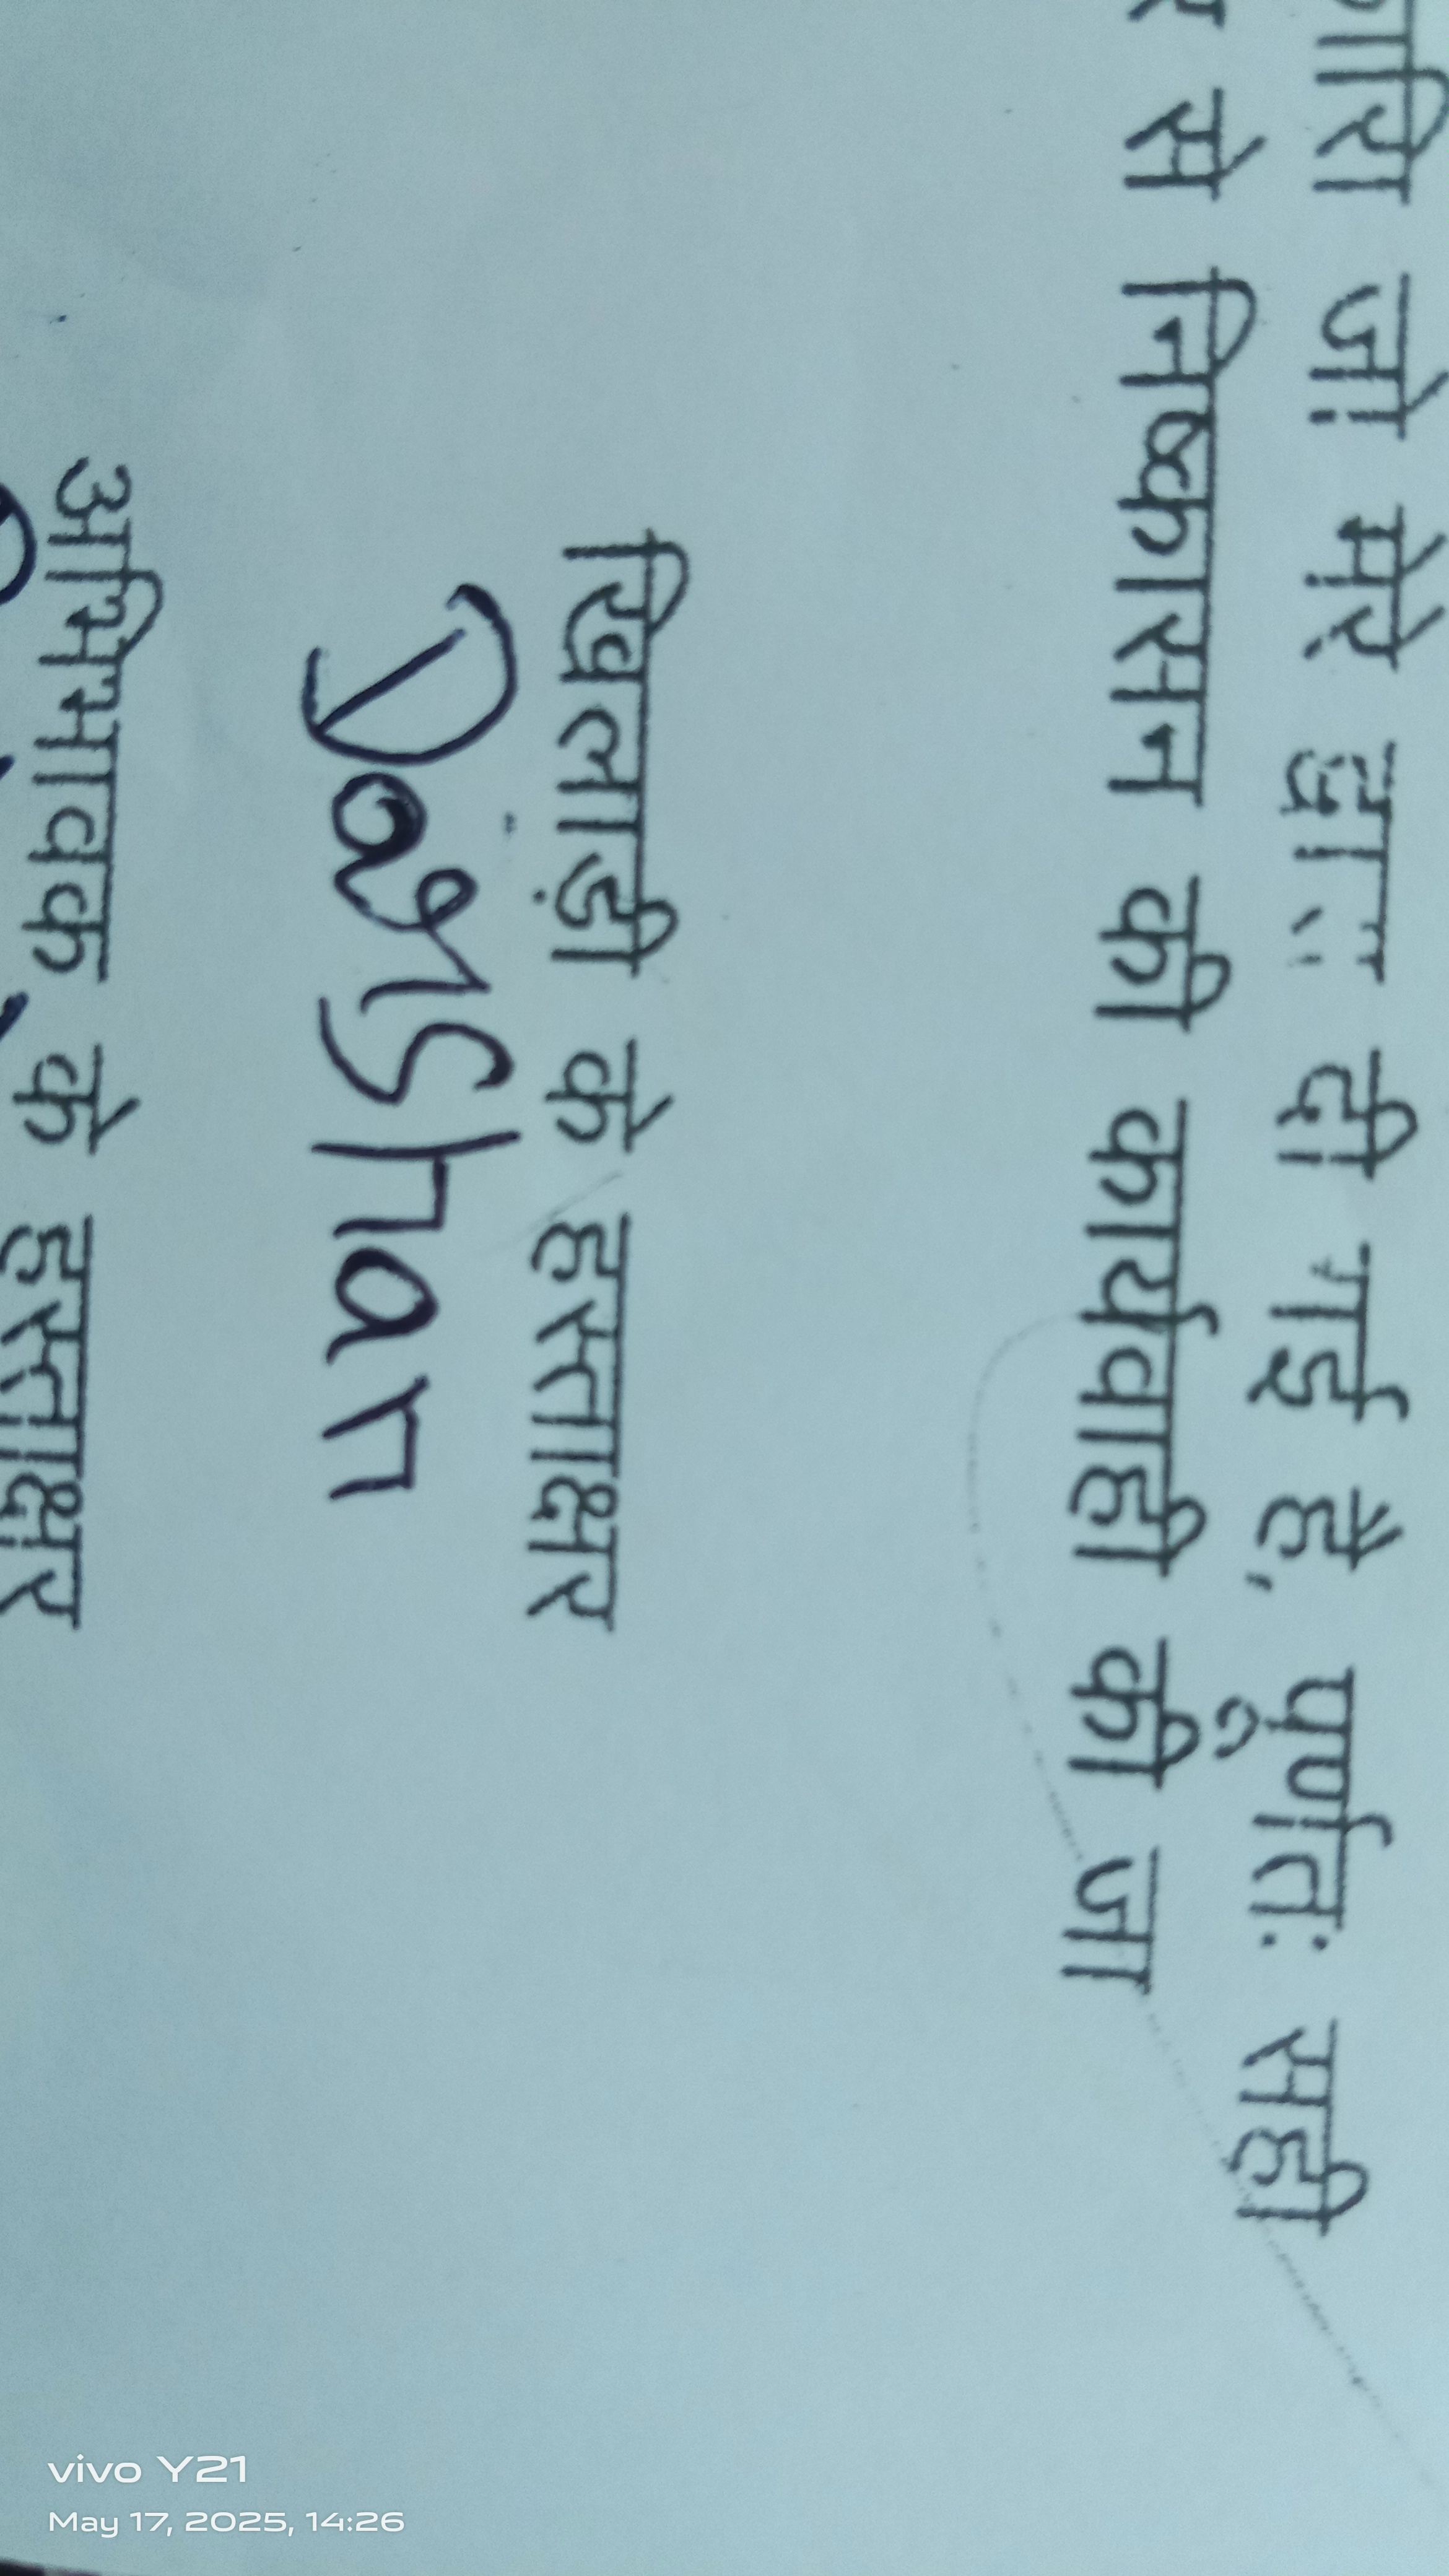 जो मेरे द्वारा दी गई है, पूर्णतः सही
से निष्कासन की कार्यवाही की जा
खिलाड़ी के हस्ताक्षर
Darshan
अभिभावक के हस्ताक्षर
vivo Y21
May 17, 2025, 14:26